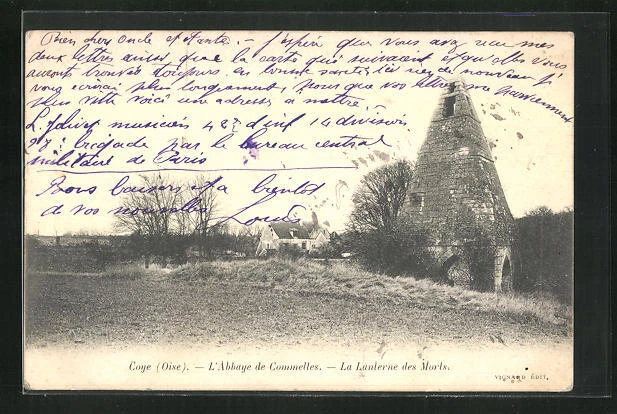 Bien chers Oncle et Tante. – J'espère que vous avez reçu mes
deux lettres ainsi que la carte qui suivaient et qu'elles vous
auront trouvés toujours en bonne santé. Ici rien de nouveau. Je
vous écrirai plus longuement. Pour que vos lettres me parviennent
plus vite voici une adresse à mettre:
L. Jolivet musicien 42e d'inf 14 division
27e brigade par le bureau central
militaire de Paris
Bons baisers et à bientôt
de vos nouvelles Louis
Coye (Oise). — L'Abbaye de Commelles. — La Lanterne des Morts.
VIGNARD ÉDIT.